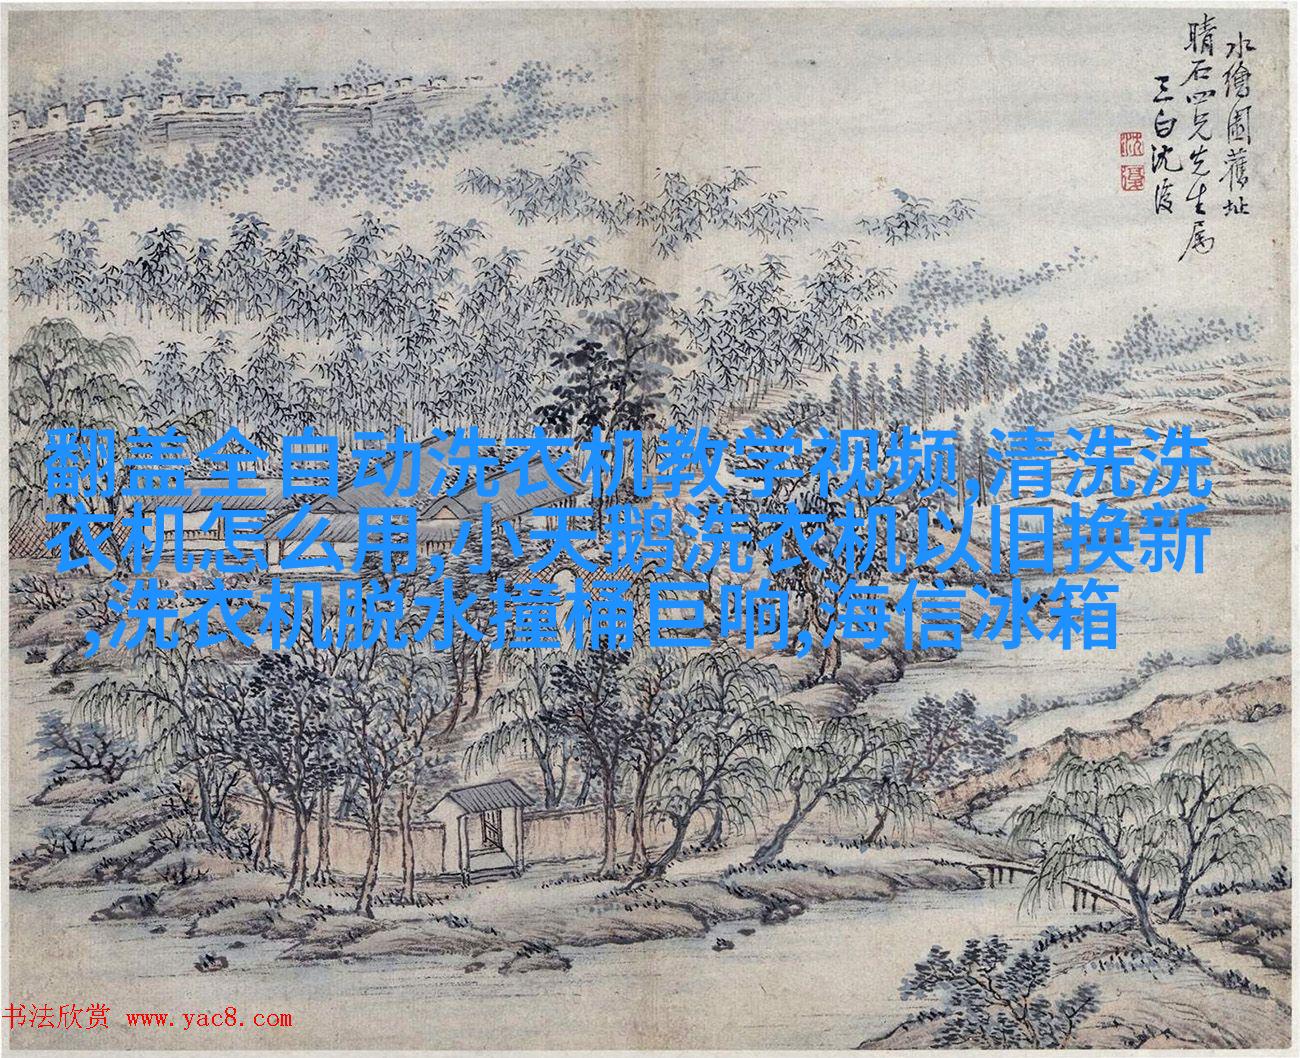 水繪園舊址
晴石四兄先生属
三白沈復
沈
復
翻盖全自动洗衣机教学视频,清洗洗
衣机怎么用,小天鹅洗衣机以旧换新
,洗衣机脱水撞桶巨响,海信冰箱
书法欣赏 www.yac8.com